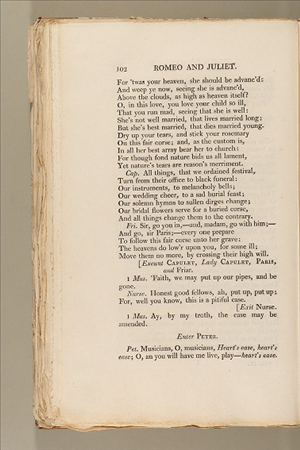 102 ROMEO AND JULIET.
For 'twas your heaven, she should be advanc'd:
And weep ye now, seeing she is advanc'd,
Above the clouds, as high as heaven itself?
O, in this love, you love your child so ill,
That you run mad, seeing that she is well:
She's not well married, that lives married long;
But she's best married, that dies married young.
Dry up your tears, and stick your rosemary
On this fair corse; and, as the custom is,
In all her best array bear her to church:
For though fond nature bids us all lament,
Yet nature's tears are reason's merriment.
Cap. All things, that we ordained festival,
Turn from their office to black funeral:
Our instruments, to melancholy bells;
Our wedding cheer, to a sad burial feast;
Our solemn hymns to sullen dirges change;
Our bridal flowers serve for a buried corse,
And all things change them to the contrary.
Fri. Sir, go you in,—and, madam, go with him;—
And go, sir Paris;—every one prepare
To follow this fair corse unto her grave:
The heavens do low'r upon you, for some ill;
Move them no more, by crossing their high will.
[Exeunt CAPULET, Lady CAPULET, PARIS,
and Friar.
1 Mus. 'Faith, we may put up our pipes, and be
gone.
Nurse. Honest good fellows, ah, put up, put up;
For, well you know, this is a pitiful case.
[Exit Nurse.
1 Mus. Ay, by my troth, the case may be
amended.
Enter PETER.
Pet. Musicians, O, musicians, Heart's ease, heart's
ease; O, an you will have me live, play—heart's ease.